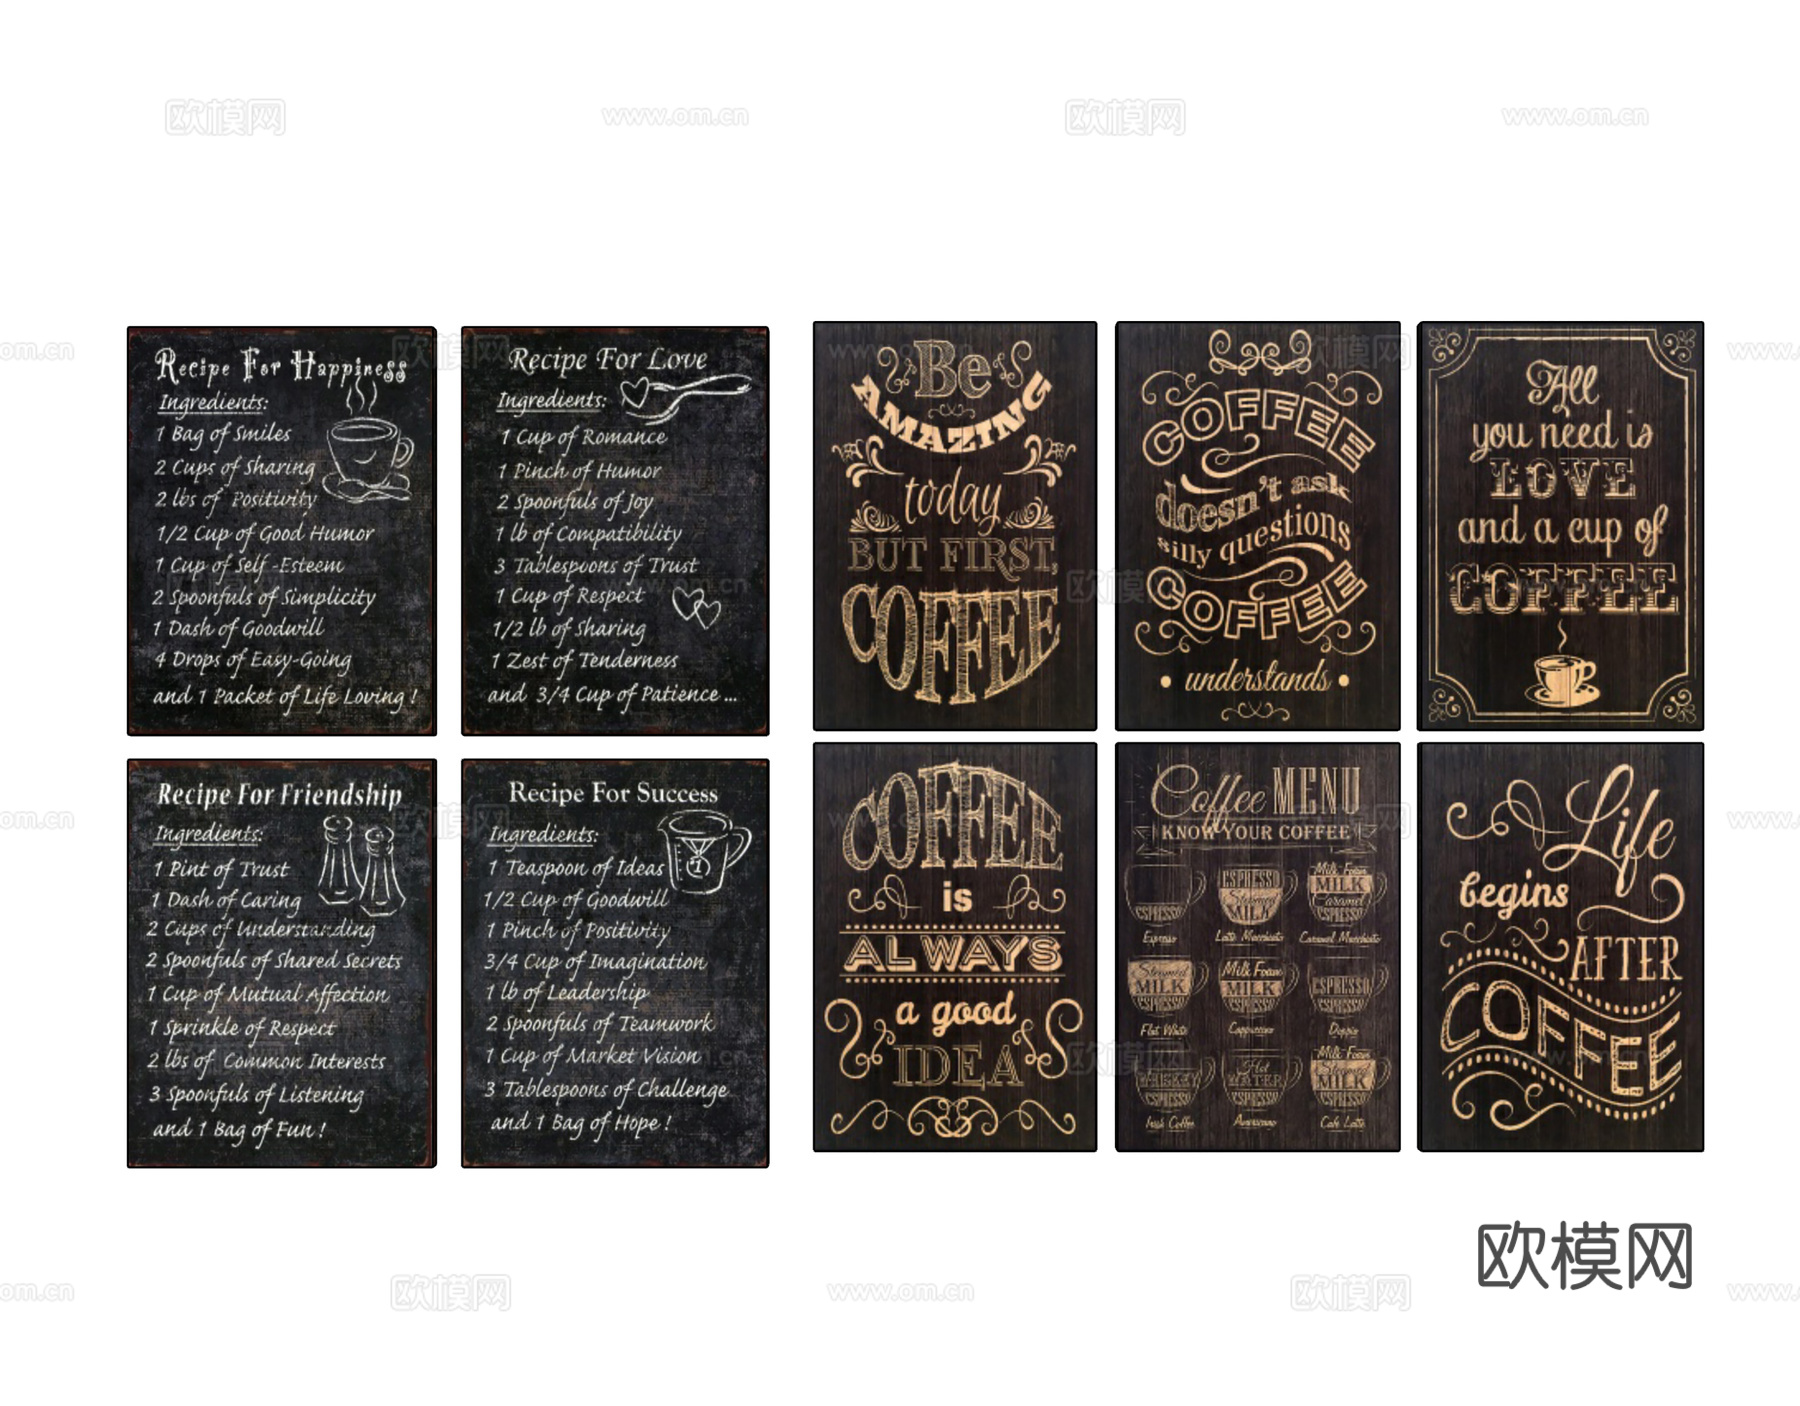 Recipe For Happiness
Ingredients:
1 Bag of Smiles
2 Cups of Sharing
2 lbs of Positivity
1/2 Cup of Good Humor
1 Cup of Self-Esteem
2 Spoonfuls of Simplicity
1 Dash of Goodwill
4 Drops of Easy-Going
and 1 Packet of Life Loving !
Recipe For Love
Ingredients:
1 Cup of Romance
1 Pinch of Humor
2 Spoonfuls of Joy
1 lb of Compatibility
3 Tablespoons of Trust
1 Cup of Respect
1/2 lb of Sharing
1 Zest of Tenderness
and 3/4 Cup of Patience ...
Be
AMAZING
today
BUT FIRST,
COFFEE
COFFEE
doesn't ask
silly questions
COFFEE
• understands •
All
you need is
LOVE
and a cup of
COFFEE
Recipe For Friendship
Ingredients:
1 Pint of Trust
1 Dash of Caring
2 Cups of Understanding
2 Spoonfuls of Shared Secrets
1 Cup of Mutual Affection
1 Sprinkle of Respect
2 lbs of Common Interests
3 Spoonfuls of Listening
and 1 Bag of Fun !
Recipe For Success
Ingredients:
1 Teaspoon of Ideas
1/2 Cup of Goodwill
1 Pinch of Positivity
3/4 Cup of Imagination
1 lb of Leadership
2 Spoonfuls of Teamwork
1 Cup of Market Vision
3 Tablespoons of Challenge
and 1 Bag of Hope !
COFFEE
is
ALWAYS
a good
IDEA
Coffee MENU
KNOW YOUR COFFEE
ESPRESSO
Espresso
ESPRESSO
Steamed
MILK
Latte Macchiato
Milk Foam
MILK
Caramel
ESPRESSO
Caramel Macchiato
Steamed
MILK
ESPRESSO
Flat White
Milk Foam
MILK
ESPRESSO
Cappuccino
ESPRESSO
ESPRESSO
Doppio
WHISKEY
ESPRESSO
Irish Coffee
Hot
WATER
ESPRESSO
Americano
Milk Foam
Steamed
MILK
ESPRESSO
Cafe Latte
Life
begins
AFTER
COFFEE
欧模网
www.om.cn